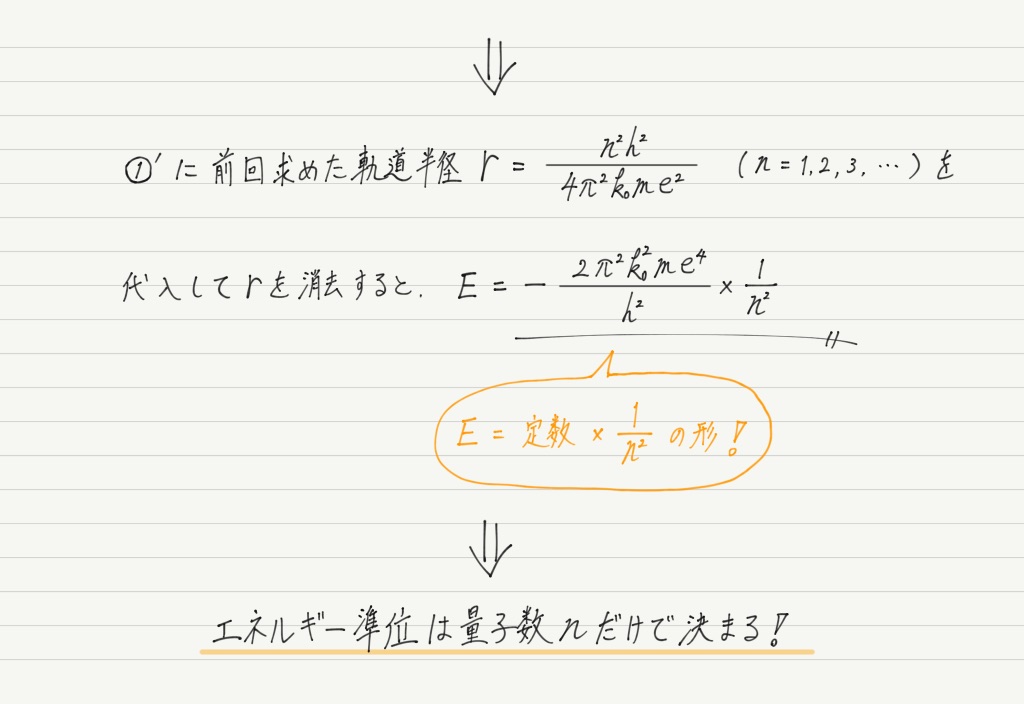 ⇓
①′に前回求めた軌道半径 r = n²h² / 4π²k₀me² (n = 1, 2, 3, …) を
代入してrを消去すると. E = − 2π²k₀²me⁴ / h² × 1 / n²
E = 定数 × 1 / n² の形!
⇓
エネルギー準位は量子数nだけで決まる!